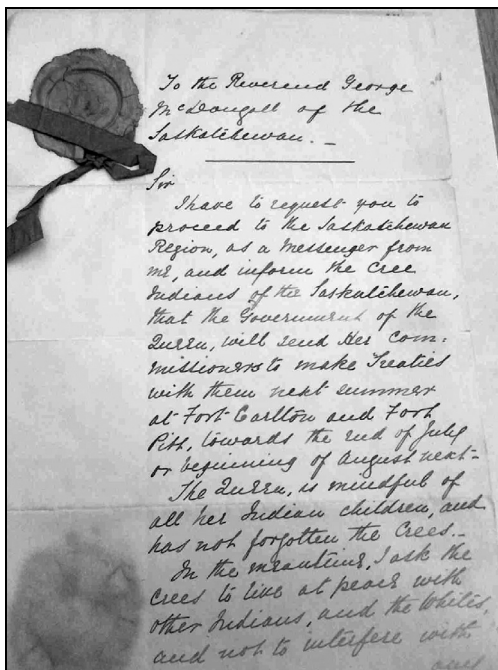 To the Reverend George
McDougall of the
Saskatchewan. —
Sir
I have to request you to
proceed to the Saskatchewan
Region, as a Messenger from
me, and inform the Cree
Indians of the Saskatchewan,
that the Government of the
Queen, will send Her Com:
missioners to make Treaties
with them next summer
at Fort Carlton and Fort
Pitt, towards the end of July
or beginning of August next—
The Queen, is mindful of
all her Indian children, and
has not forgotten the Crees.—
In the meantime, I ask the
Crees to live at peace with
other Indians, and the Whites,
and not to interfere with